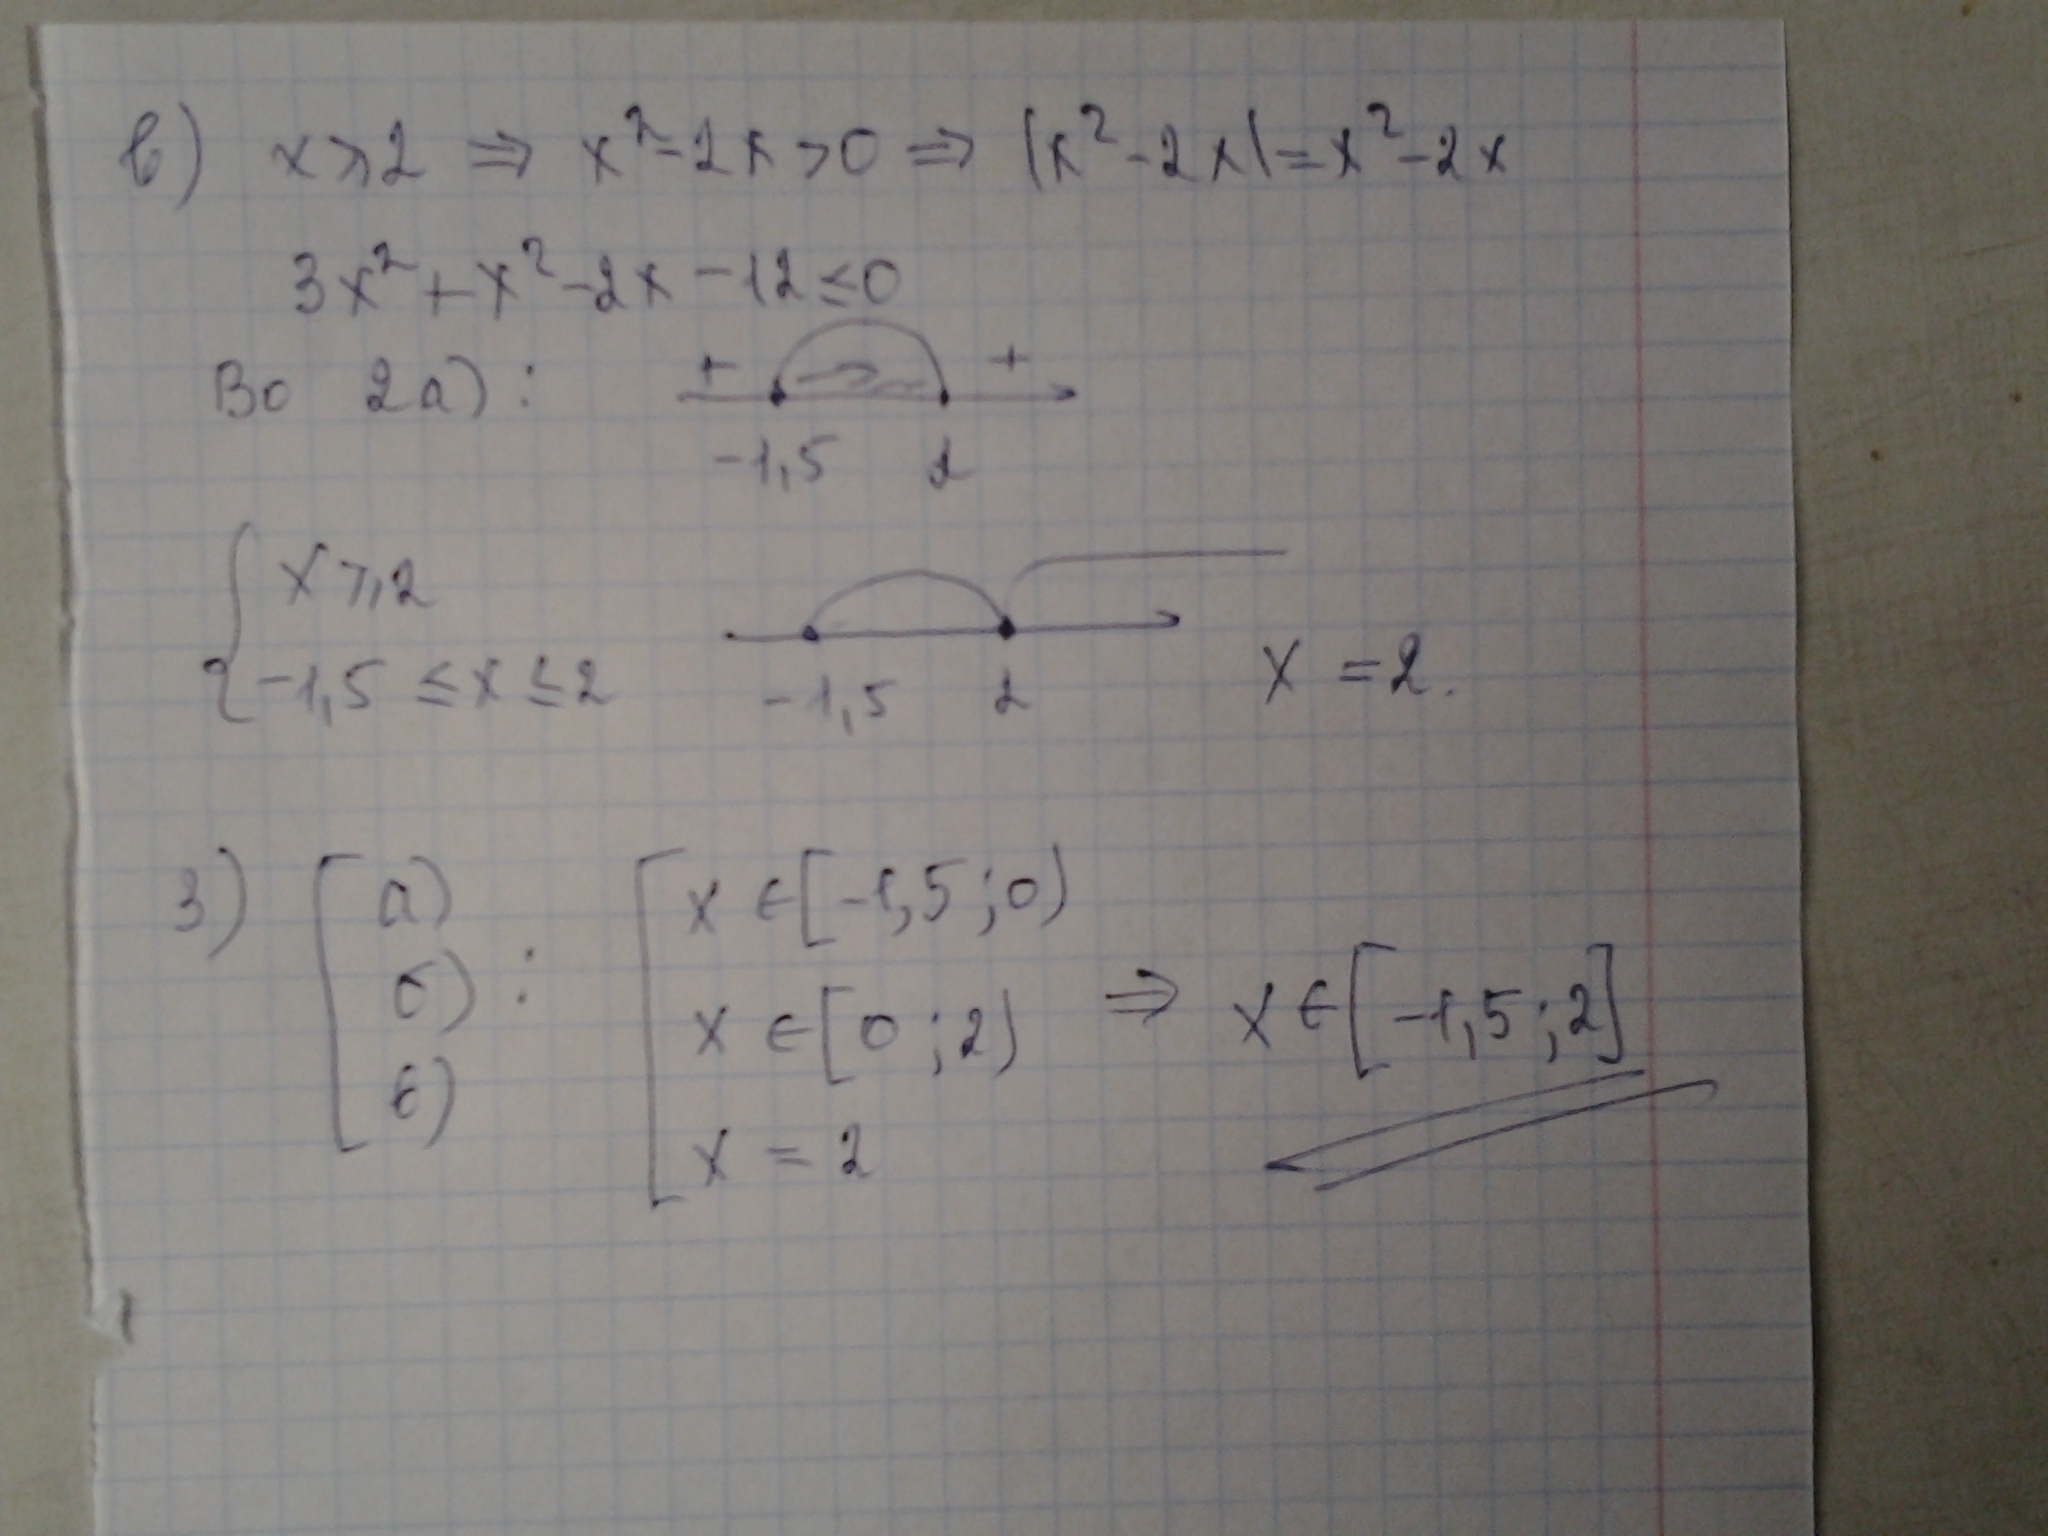 в) x⩾2 ⇒ x²-2x>0 ⇒ |x²-2x|=x²-2x
3x²+x²-2x-12≤0
Во 2а): + +
-1,5 2
{ x⩾2
-1,5≤x≤2 -1,5 2 x=2.
3) [ а) [ x∈[-1,5;0)
б) : x∈[0;2) ⇒ x∈[-1,5;2]
в) x=2